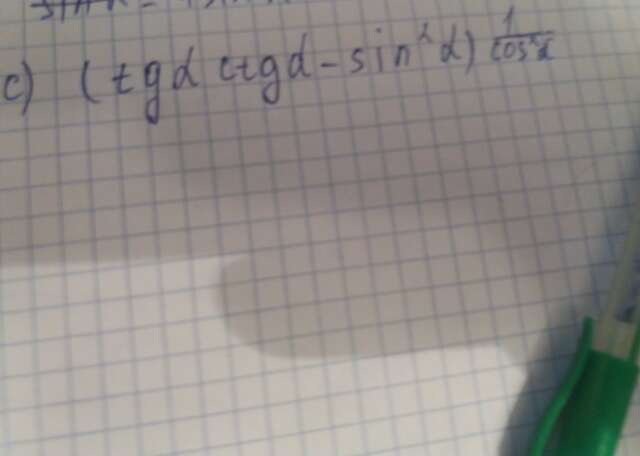 c) (tgα ctgα - sin²α) 1/cos²α